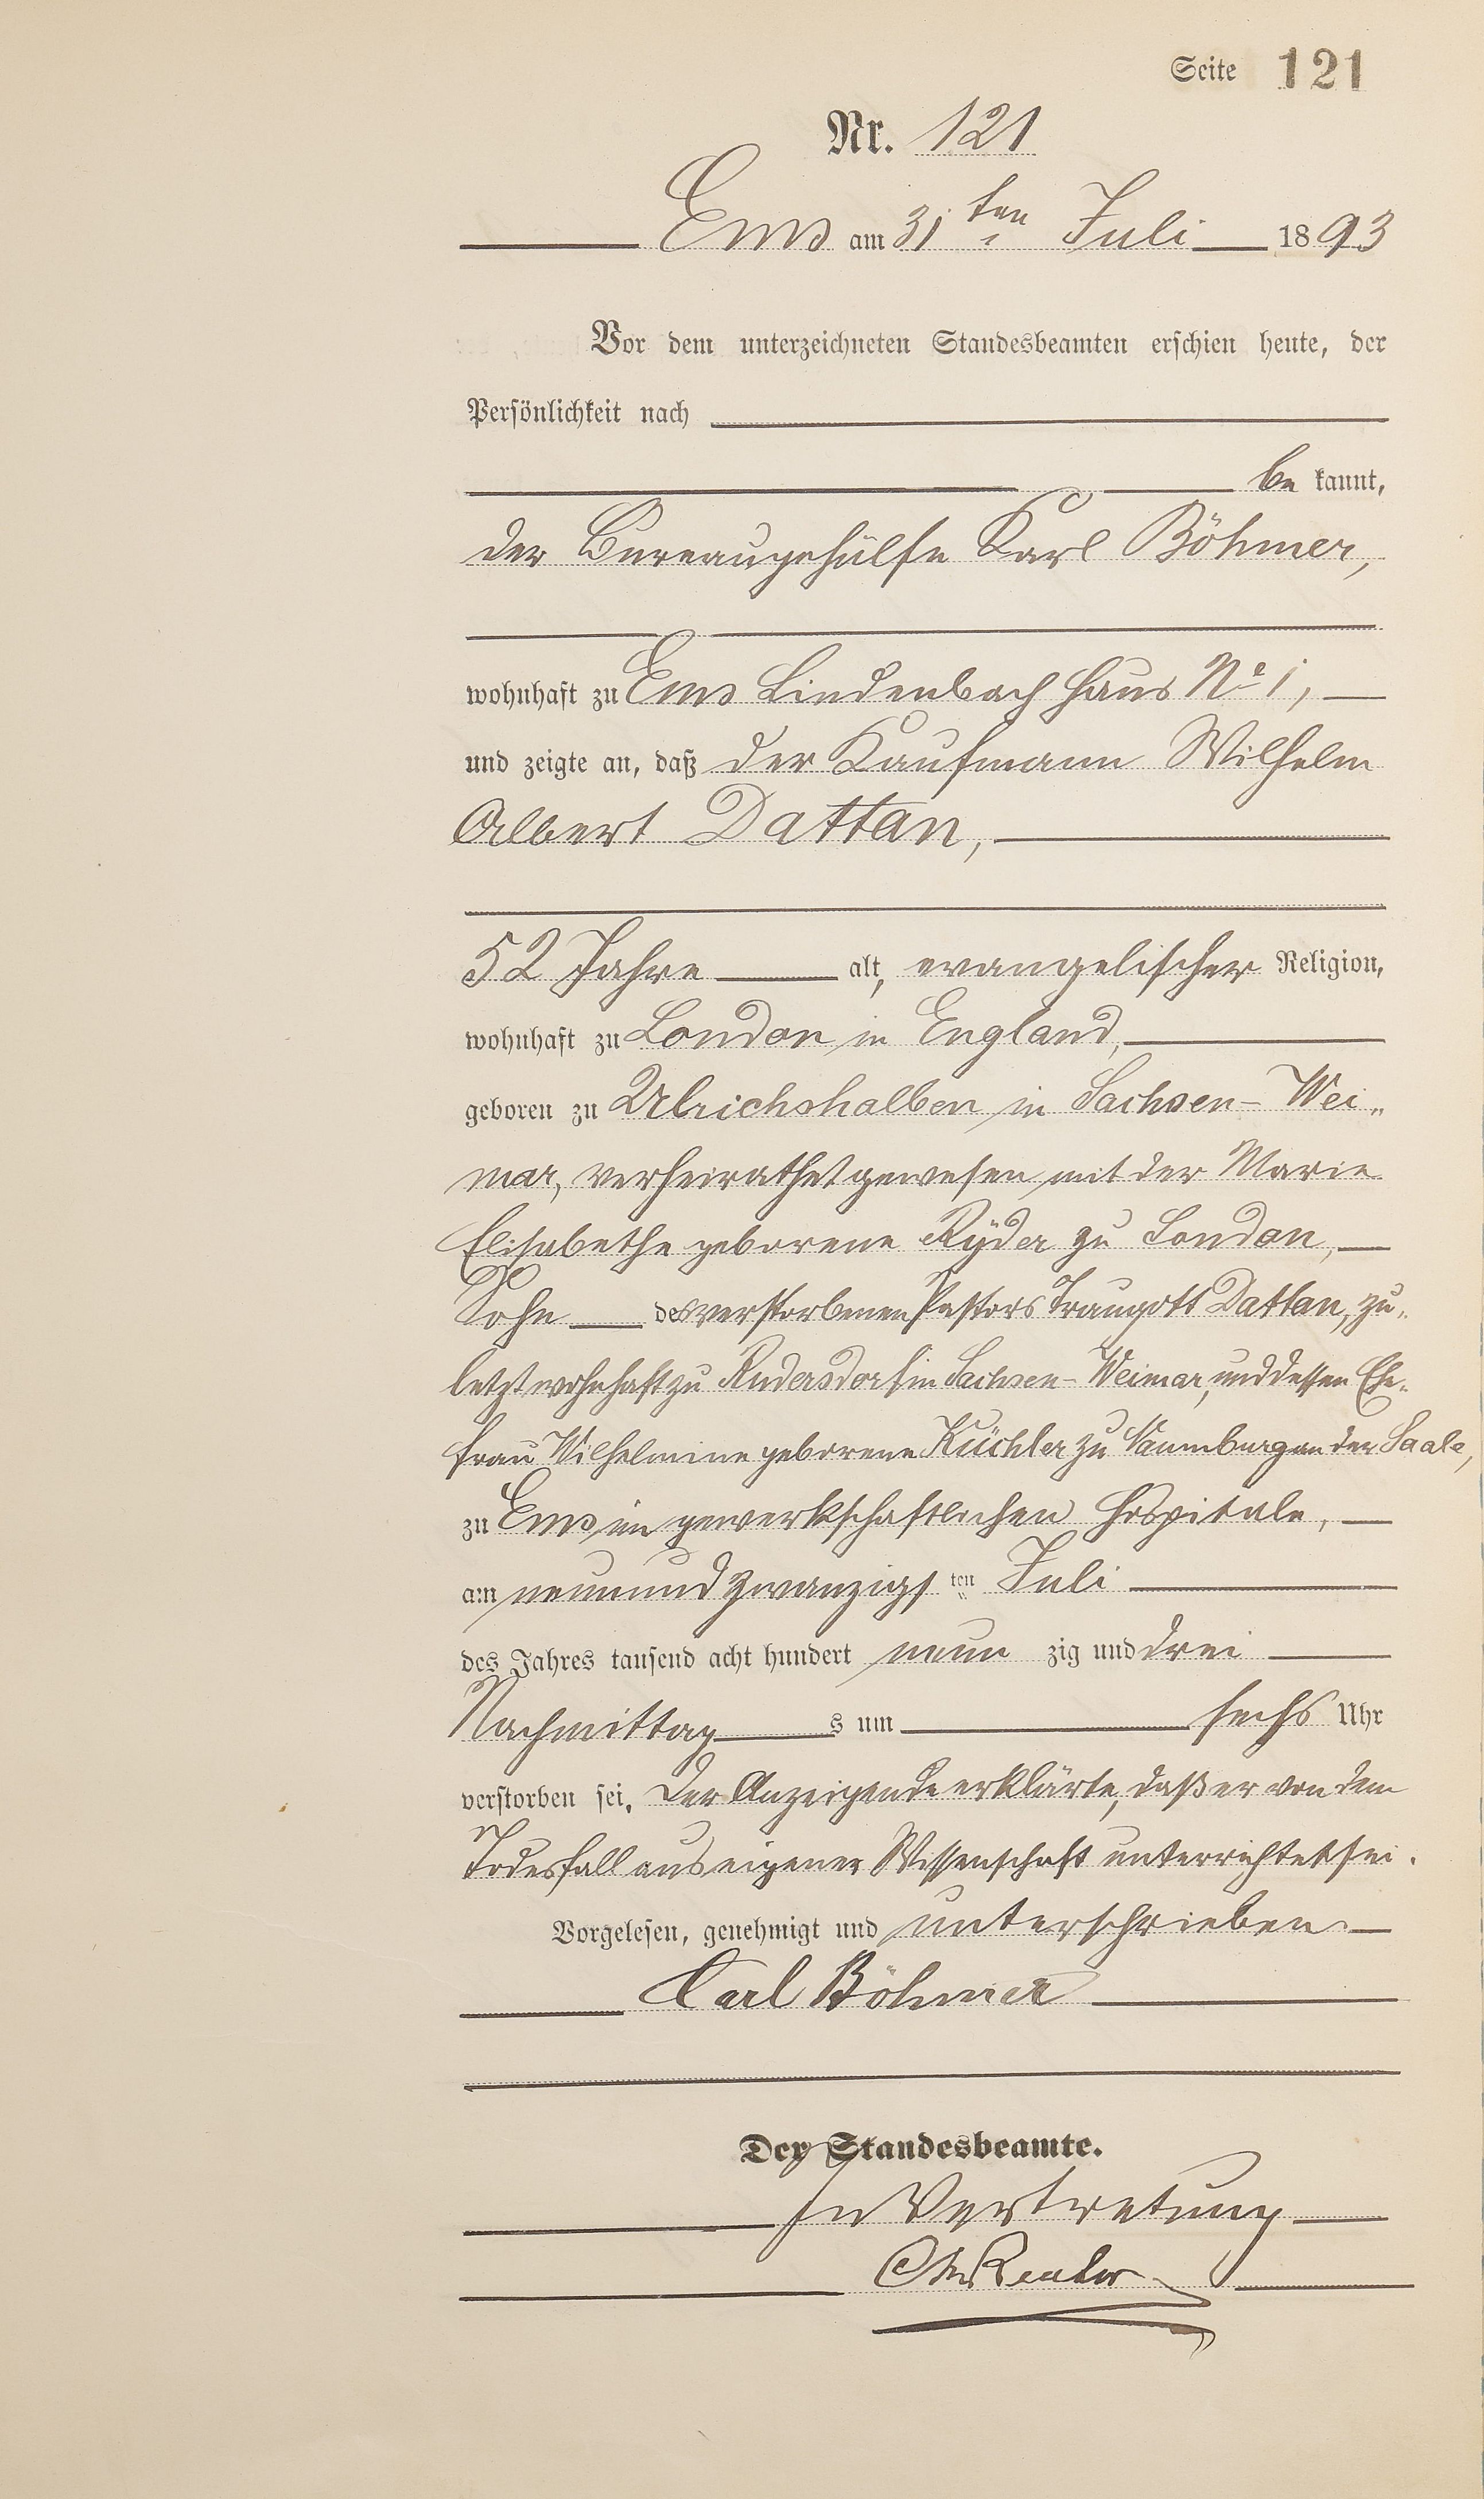 Seite 121
Nr. 121
Ems am 31ten Juli 1893
Vor dem unterzeichneten Standesbeamten erschien heute, der
Persönlichkeit nach
be kannt,
der Bureaugehülfe Karl Böhmer,
wohnhaft zu Ems Lindenbach Haus No 1,
und zeigte an, daß der Kaufmann Wilhelm
Albert Dattan,
52 Jahre alt, evangelischer Religion,
wohnhaft zu London in England,
geboren zu Ulrichshalben in Sachsen-Wei„
mar, verheirathet gewesen mit der Marie
Elisabethe geborene Ryder zu London,
Sohn des verstorbenen Pastors Traugott Dattan, zu„
letzt wohnhaft zu Rudersdorf in Sachsen-Weimar, und dessen Ehe„
frau Wilhelmine geborene Küchler zu Naumburg an der Saale,
zu Ems im gewerkschaftlichen Hospitale,
am neunundzwanzigs ten Juli
des Jahres tausend acht hundert neun zig und drei
Nachmittag s um sechs Uhr
verstorben sei. Der Anzeigende erklärte, daß er von dem
Todesfall aus eigener Wissenschaft unterrichtet sei.
Vorgelesen, genehmigt und unterschrieben
Carl Böhmer
Der Standesbeamte.
In Vertretung